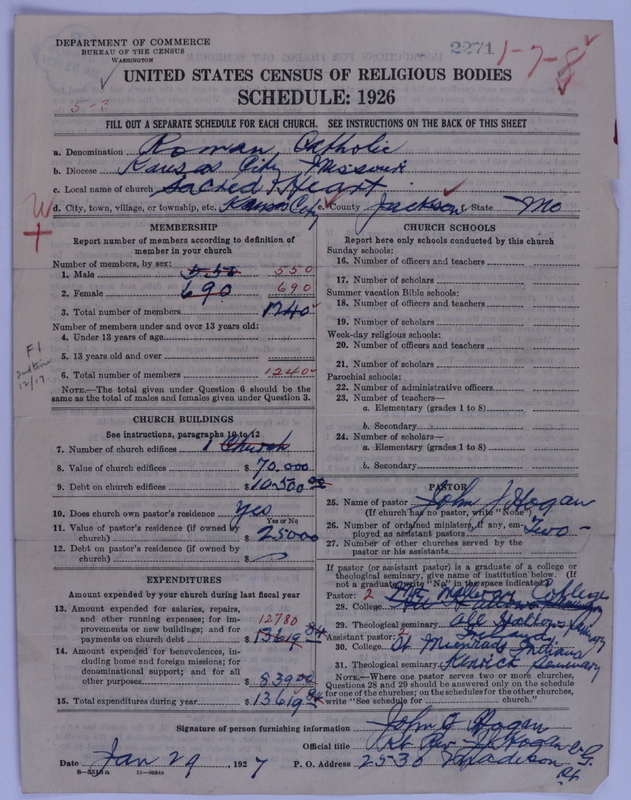 DEPARTMENT OF COMMERCE
BUREAU OF THE CENSUS
WASHINGTON
2271 1-7-8
5-3
UNITED STATES CENSUS OF RELIGIOUS BODIES
SCHEDULE: 1926
FILL OUT A SEPARATE SCHEDULE FOR EACH CHURCH. SEE INSTRUCTIONS ON THE BACK OF THIS SHEET
a. Denomination Roman Catholic
b. Diocese Kansas City Missouri
c. Local name of church Sacred Heart
d. City, town, village, or township, etc. Kansas City e. County Jackson State Mo
MEMBERSHIP
Report number of members according to definition of
member in your church
Number of members, by sex:
1. Male 550 550
2. Female 690 690
3. Total number of members 1240
Number of members under and over 13 years old:
4. Under 13 years of age
5. 13 years old and over
6. Total number of members 1240
NOTE.—The total given under Question 6 should be the
same as the total of males and females given under Question 3.
CHURCH BUILDINGS
See instructions, paragraphs 10 to 12
7. Number of church edifices 1 Church
8. Value of church edifices $ 70.000
9. Debt on church edifices $ 10.500 00
10. Does church own pastor's residence yes
Yes or No
11. Value of pastor's residence (if owned by
church) $ 25000
12. Debt on pastor's residence (if owned by
church) $
EXPENDITURES
Amount expended by your church during last fiscal year
13. Amount expended for salaries, repairs,
and other running expenses; for im-
provements or new buildings; and for
payments on church debt $ 12780 13619 84
14. Amount expended for benevolences, in-
cluding home and foreign missions; for
denominational support; and for all
other purposes $ 839 00
15. Total expenditures during year $ 13619 84
CHURCH SCHOOLS
Report here only schools conducted by this church
Sunday schools:
16. Number of officers and teachers
17. Number of scholars
Summer vacation Bible schools:
18. Number of officers and teachers
19. Number of scholars
Week-day religious schools:
20. Number of officers and teachers
21. Number of scholars
Parochial schools:
22. Number of administrative officers
23. Number of teachers—
a. Elementary (grades 1 to 8)
b. Secondary
24. Number of scholars—
a. Elementary (grades 1 to 8)
b. Secondary
PASTOR
25. Name of pastor John J Hogan
(If church has no pastor, write "None")
26. Number of ordained ministers, if any, em-
ployed as assistant pastors Two
27. Number of other churches served by the
pastor or his assistants
If pastor (or assistant pastor) is a graduate of a college or
theological seminary, give name of institution below. (If
not a graduate, write "No" in the space indicated.)
Pastor: 2 College
28. College
29. Theological seminary All Hallows Seminary
Assistant pastor: 2 Ireland
30. College St Meinrads Indiana
31. Theological seminary Kenrick Seminary
NOTE.—Where one pastor serves two or more churches,
Questions 28 and 29 should be answered only on the schedule
for one of the churches; on the schedules for the other churches,
write "See schedule for church.
Signature of person furnishing information John J Hogan
Official title Rt Rev J J Hogan
Date Jan 29, 1927 P. O. Address 2530 Madison
8—5515a 11—9034